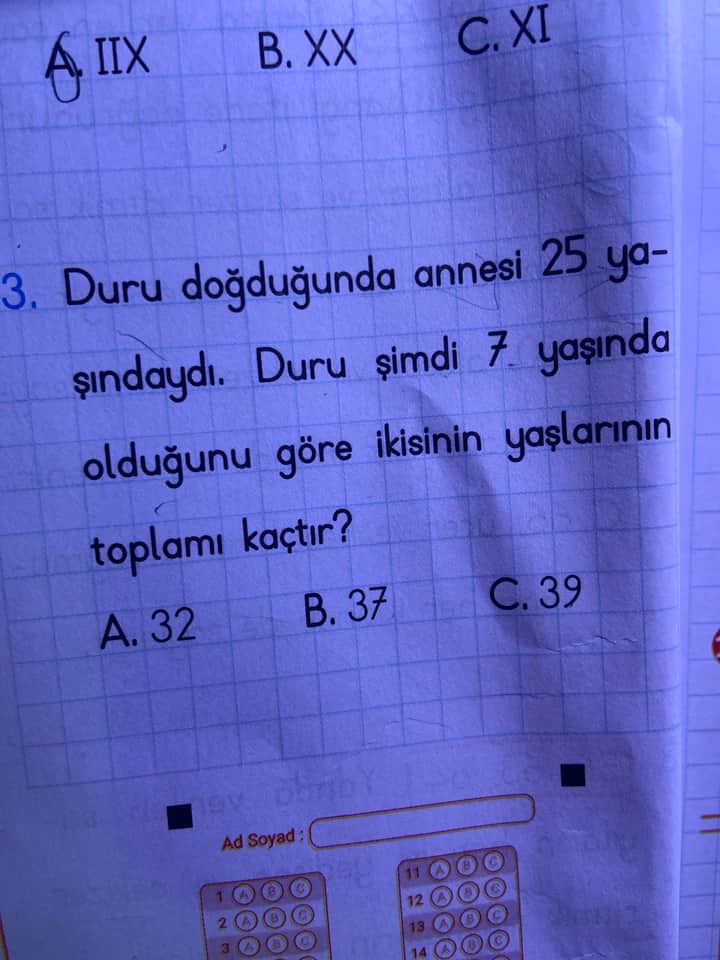 A. IIX B. XX C. XI
3. Duru doğduğunda annesi 25 ya-
şındaydı. Duru şimdi 7 yaşında
olduğunu göre ikisinin yaşlarının
toplamı kaçtır?
A. 32 B. 37 C. 39
Ad Soyad :
1 A B C
2 A B C
3 A B C
11 A B C
12 A B C
13 A B C
14 A B C